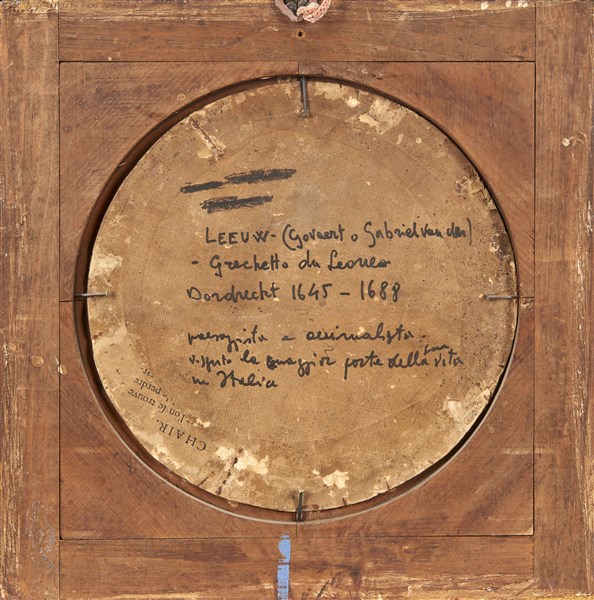 LEEUW - (Govaert o Gabriel van der)
- Grechetto da Leone
Dordrecht 1645 - 1688
paesaggista e animalista -
vissuto la maggior parte della sua vita
in Italia
CHAIR.
l'on se trouve
perdre